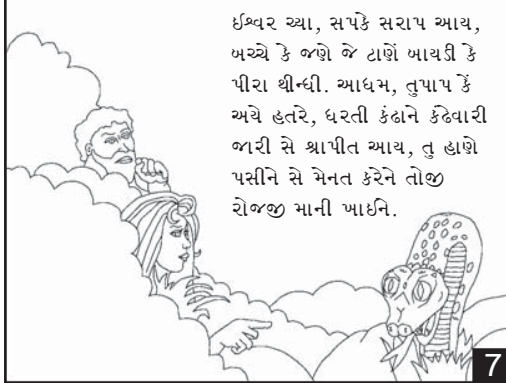 ઈશ્વર ચ્યા, સપકે સરાપ આય,
બચ્ચે કે જણે જે ટાણેં બાયડી કે
પીરા થીન્ધી. આધમ, તુપાપ કેં
અયે હતરે, ધરતી કંઢાને કંઢેવારી
જારી સે શ્રાપીત આય, તુ હાણે
પસીને સે મેનત કરેને તોજી
રોજજી માની ખાઇને.
7